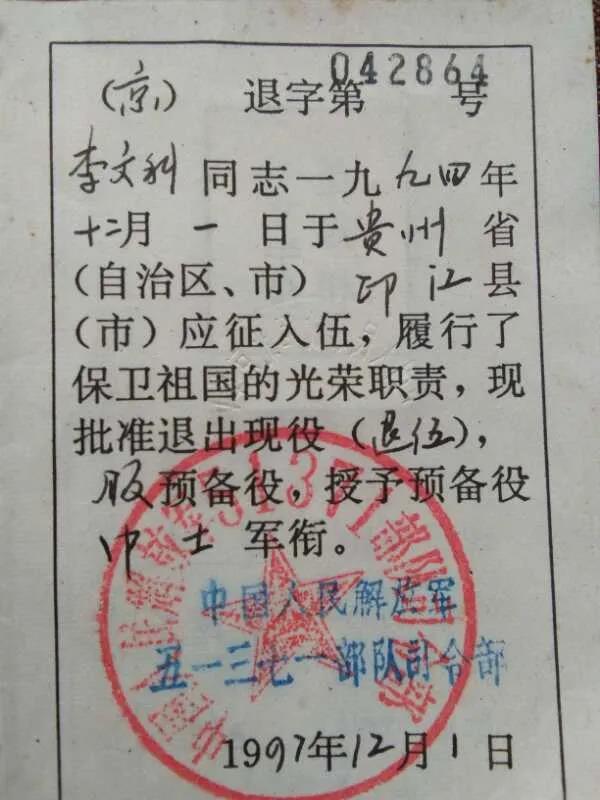 （京） 退字第042864号
李文科 同志一九九四年
十二月 一 日于贵州 省
（自治区、市） 印江县
（市）应征入伍，履行了
保卫祖国的光荣职责，现
批准退出现役（退伍），
服预备役，授予预备役
中士 军衔。
中国人民解放军51371部队司令部
中国人民解放军
五一三七一部队司令部
1997年12月1日